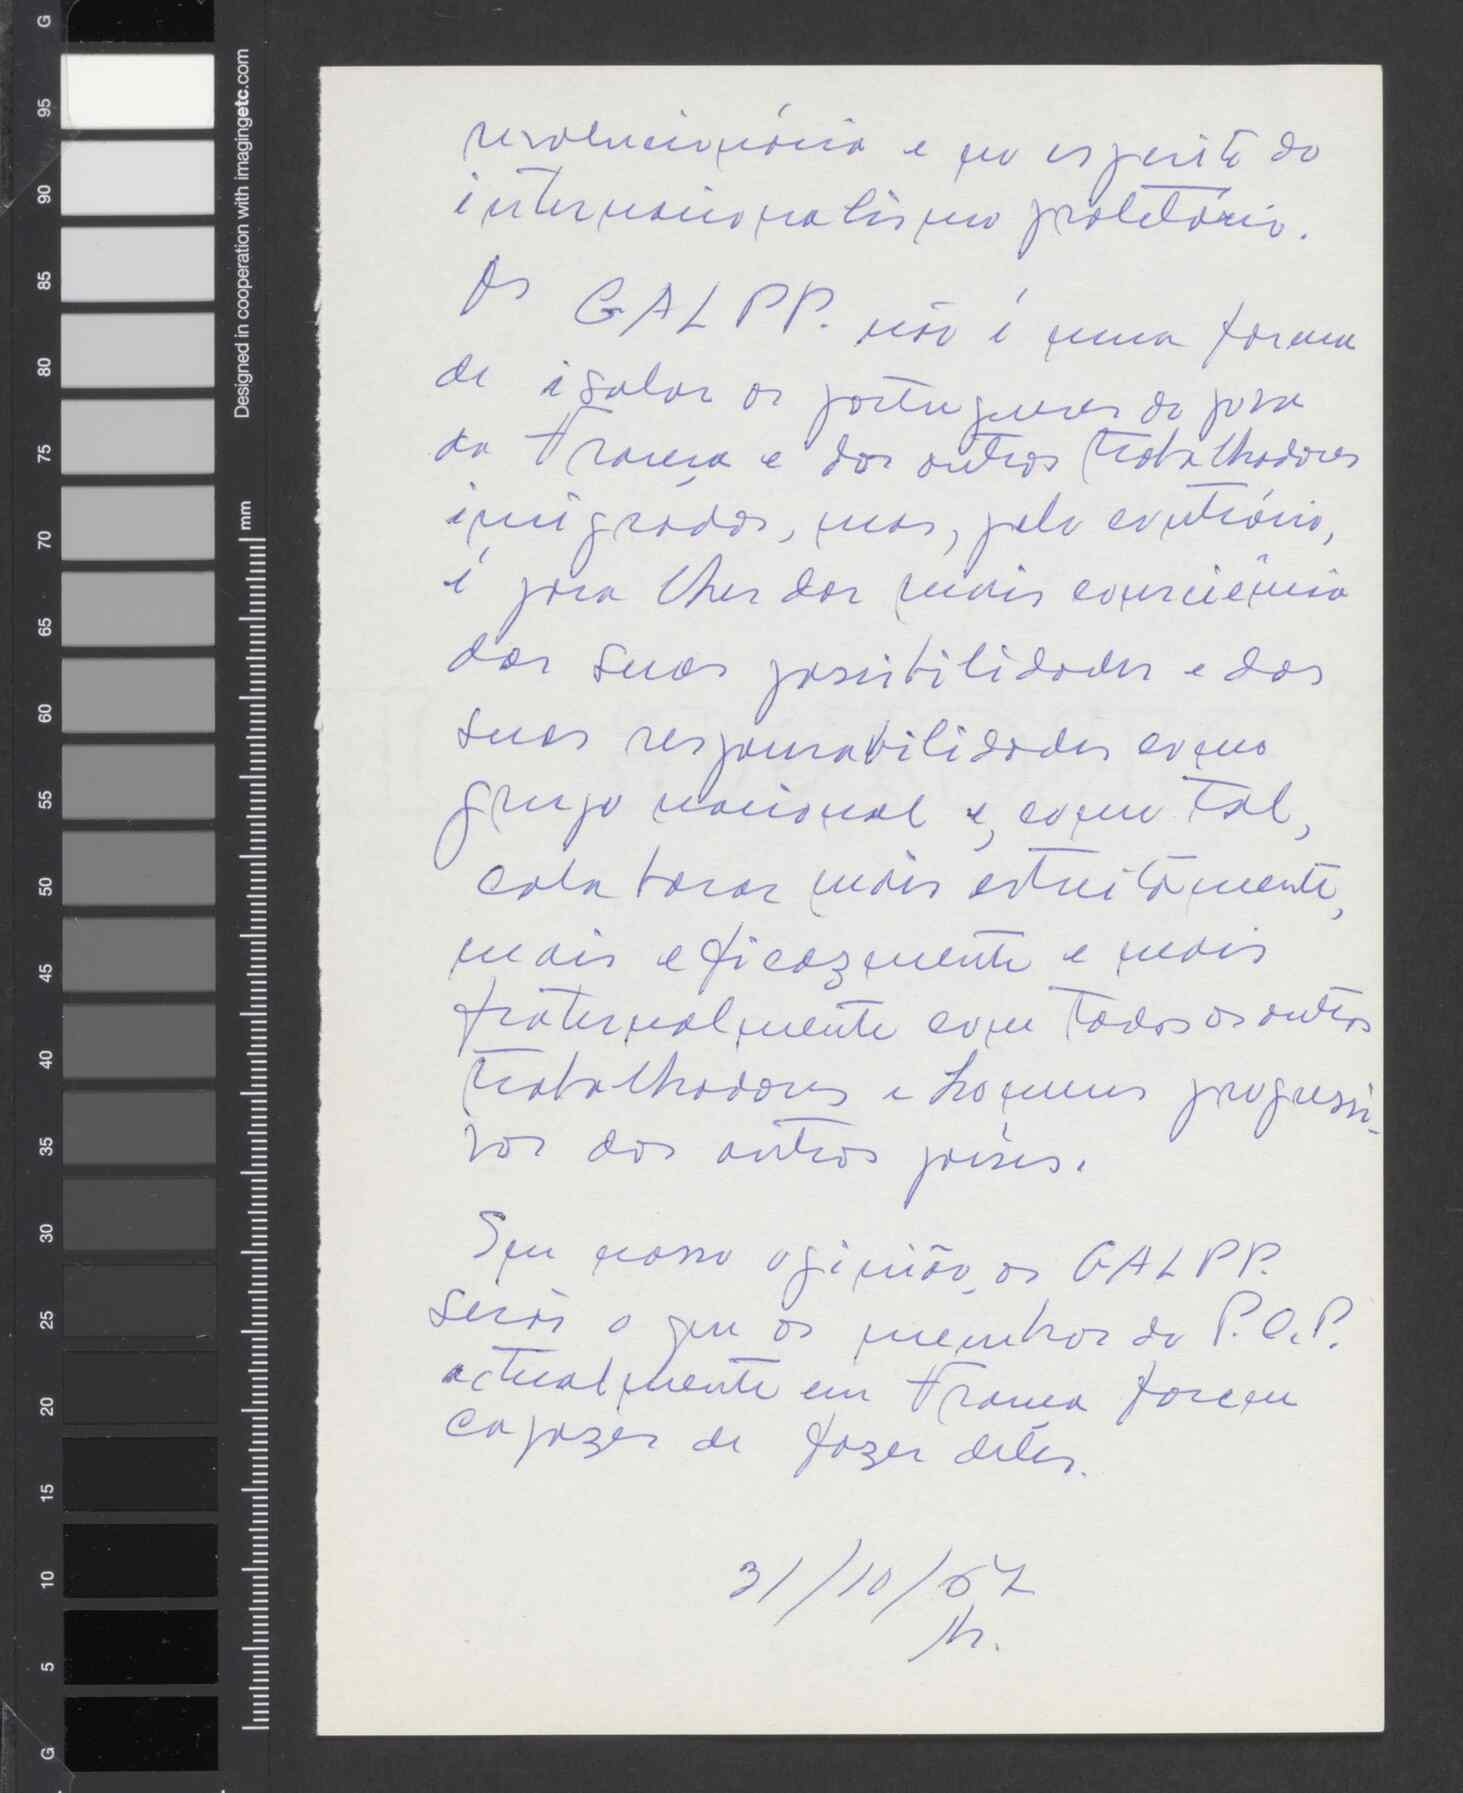 revolucionária e no espírito do
internacionalismo proletário.
Os GALPP. não é uma forma
de isolar os portugueses do povo
da França e dos outros trabalhadores
imigrados, mas, pelo contrário,
é para lhes dar mais consciência
das suas possibilidades e das
suas responsabilidades como
grupo nacional e, como tal,
colaborar mais estreitamente,
mais eficazmente e mais
fraternalmente com todos os outros
trabalhadores e homens progressi-
vos dos outros países.
Em nossa opinião, os GALPP.
serão o que os membros do P.C.P.
actualmente em França forem
capazes de fazer deles.
31/10/67
Designed in cooperation with imagingetc.com
mm
G
95
90
85
80
75
70
65
60
55
50
45
40
35
30
25
20
15
10
5
G